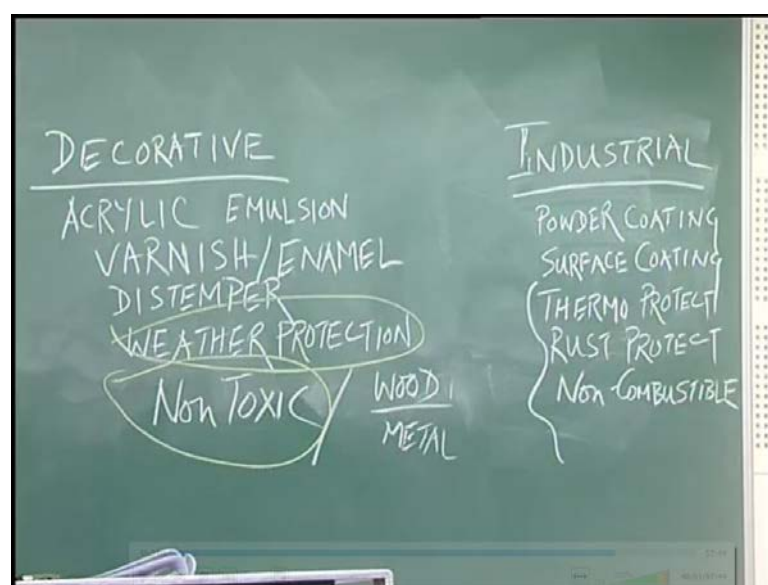 DECORATIVE
ACRYLIC EMULSION
VARNISH/ENAMEL
DISTEMPER
WEATHER PROTECTION
NON TOXIC / WOOD
METAL
INDUSTRIAL
POWDER COATING
SURFACE COATING
THERMO PROTECT
RUST PROTECT
NON-COMBUSTIBLE